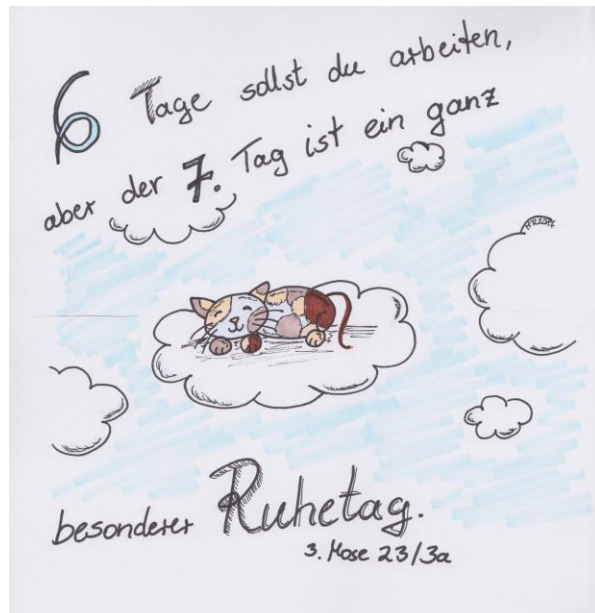 6 Tage sollst du arbeiten,
aber der 7. Tag ist ein ganz
besonderer Ruhetag.
3. Mose 23/3a